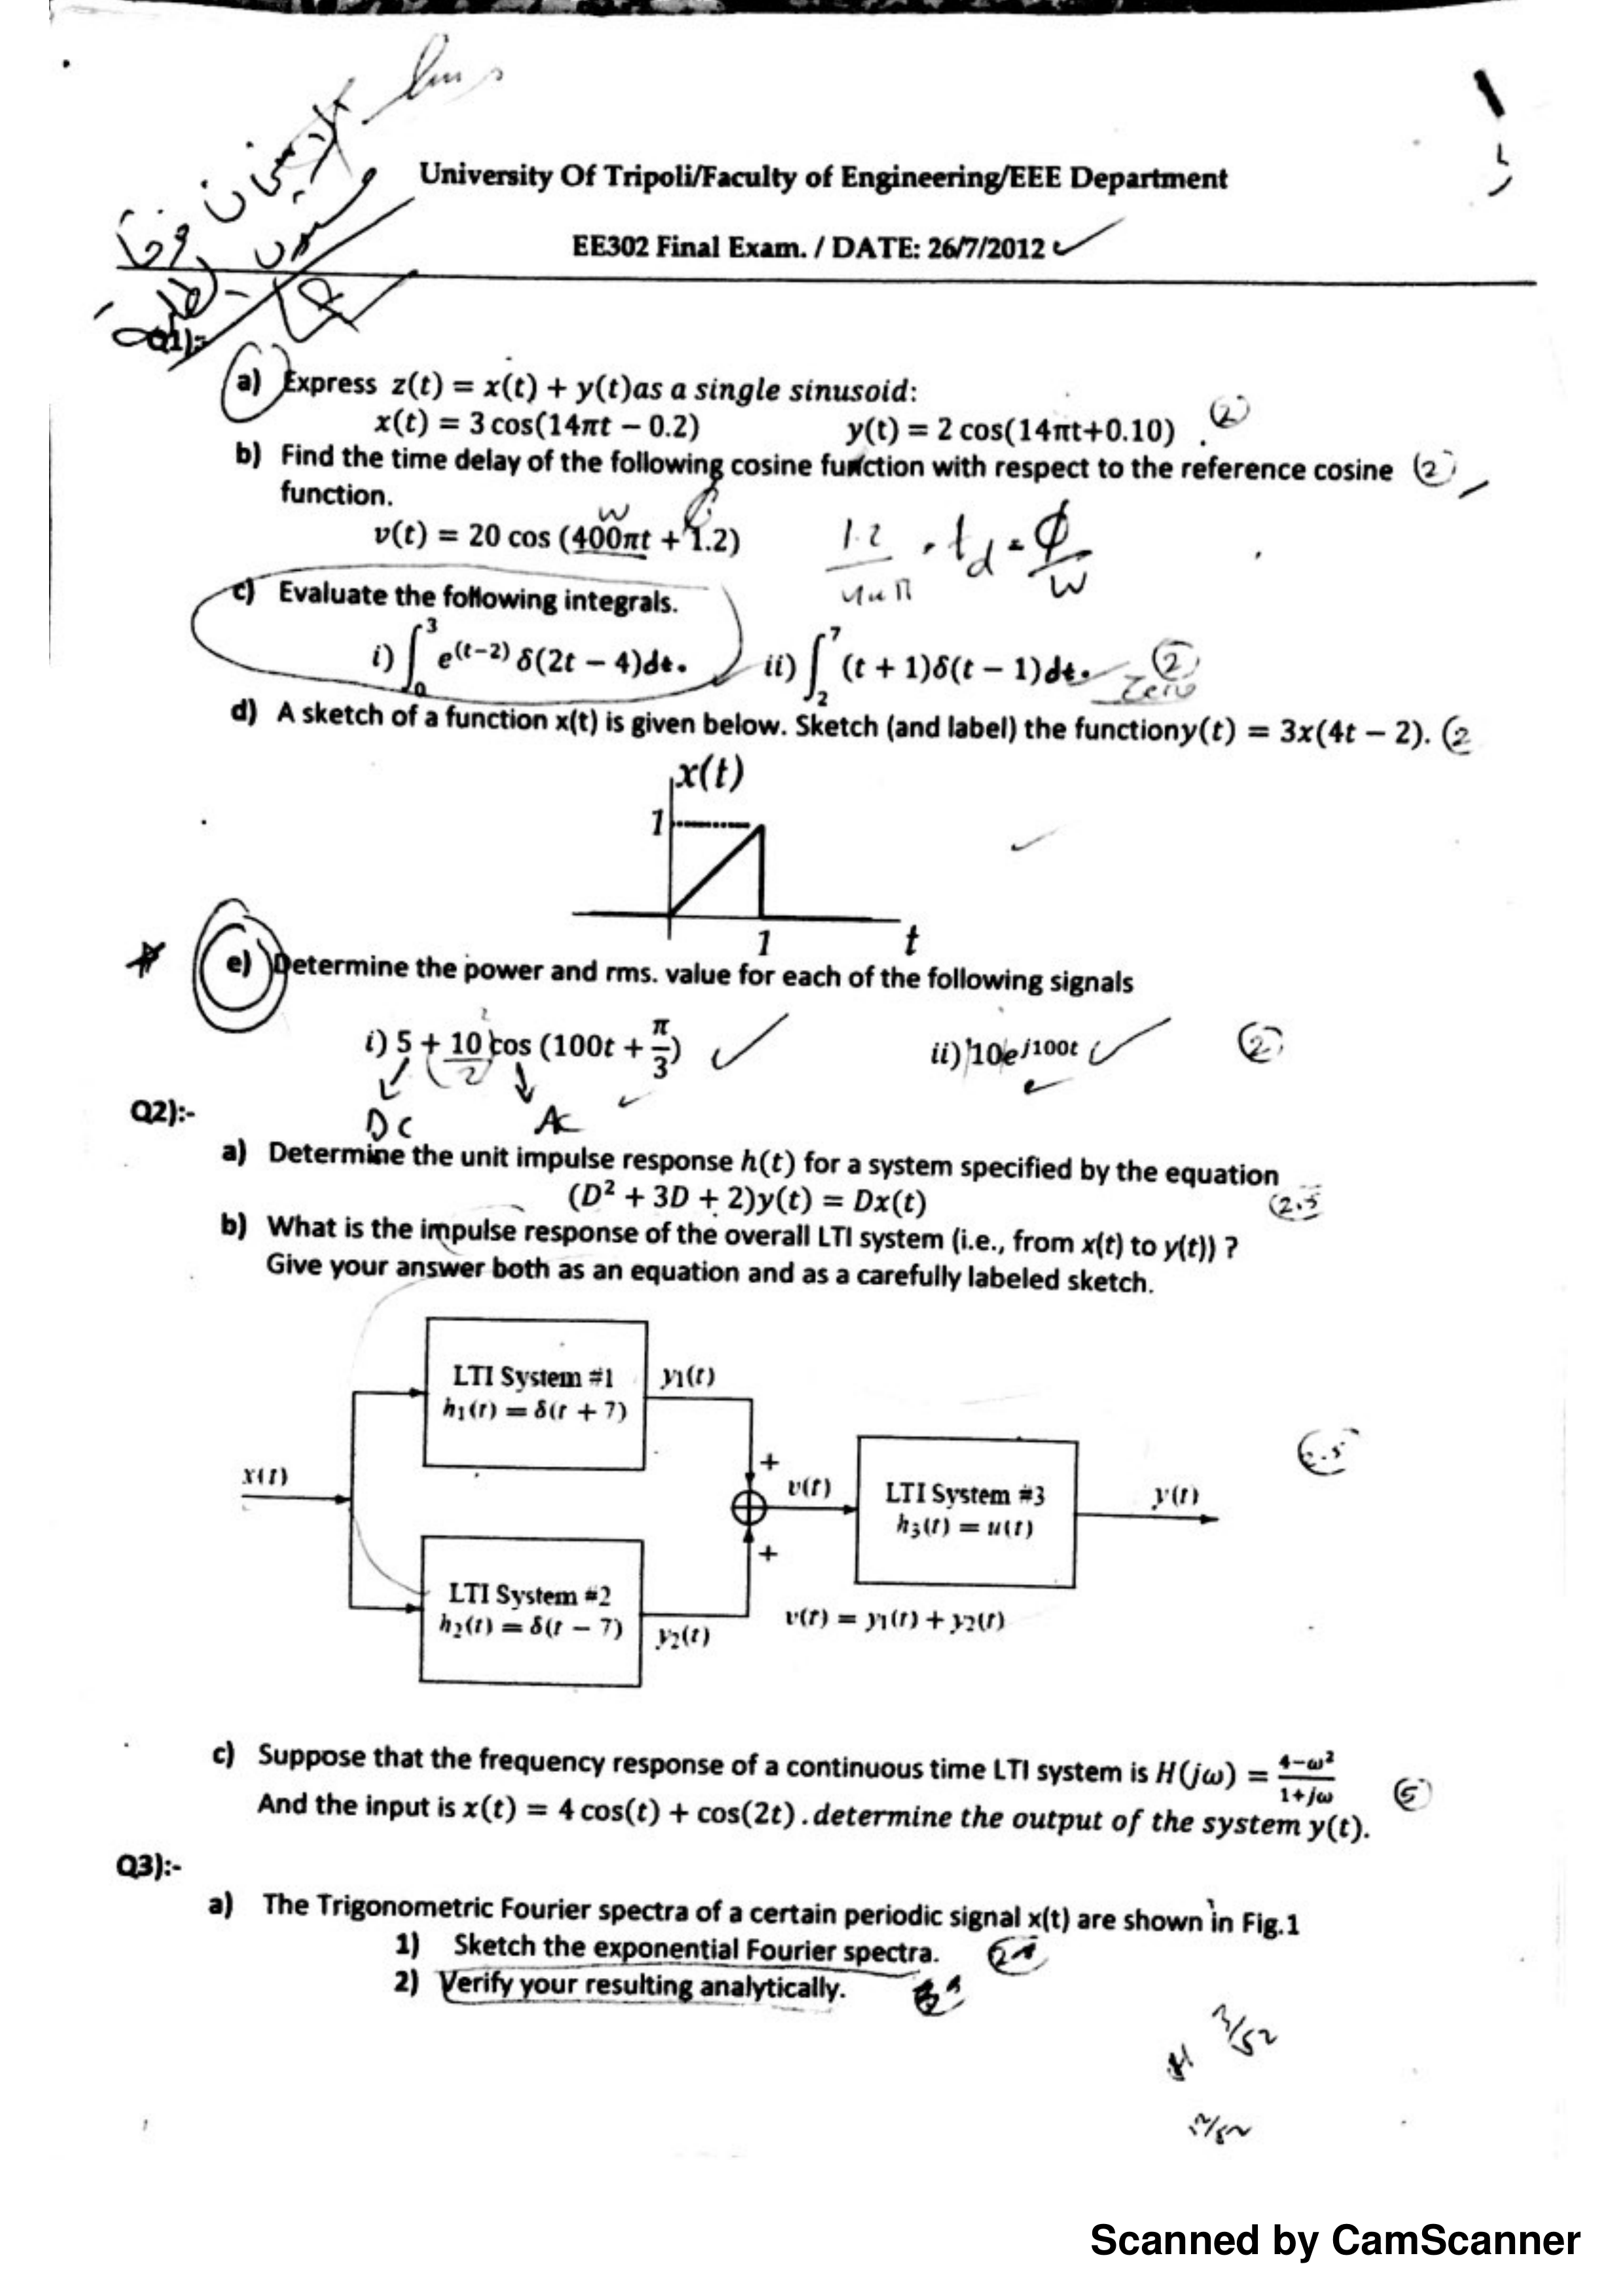 University Of Tripoli/Faculty of Engineering/EEE Department
EE302 Final Exam. / DATE: 26/7/2012
Q1):-
a) Express z(t) = x(t) + y(t)as a single sinusoid:
x(t) = 3 cos(14πt − 0.2) y(t) = 2 cos(14πt+0.10) . (2)
b) Find the time delay of the following cosine function with respect to the reference cosine (2)
function.
w
v(t) = 20 cos (400πt + 1.2) 1.2 td = ϕ/w
c) Evaluate the following integrals.
i) ∫₀³ e^(t−2) δ(2t − 4)dt. ii) ∫₂⁷ (t + 1)δ(t − 1)dt. Zero (2)
d) A sketch of a function x(t) is given below. Sketch (and label) the functiony(t) = 3x(4t − 2). (2
x(t)
1
1 t
e) Determine the power and rms. value for each of the following signals
i) 5 + 10 cos (100t + π/3) ii) 10e^j100t (2)
2
DC AC
Q2):-
a) Determine the unit impulse response h(t) for a system specified by the equation
(D² + 3D + 2)y(t) = Dx(t) (2.5
b) What is the impulse response of the overall LTI system (i.e., from x(t) to y(t)) ?
Give your answer both as an equation and as a carefully labeled sketch.
LTI System #1 y₁(t)
h₁(t) = δ(t + 7)
x(t)
+
v(t)
LTI System #3
h₃(t) = u(t)
y(t)
+
LTI System #2
h₂(t) = δ(t − 7) y₂(t)
v(t) = y₁(t) + y₂(t)
c) Suppose that the frequency response of a continuous time LTI system is H(jω) = (4−ω²)/(1+jω) (5)
And the input is x(t) = 4 cos(t) + cos(2t) .determine the output of the system y(t).
Q3):-
a) The Trigonometric Fourier spectra of a certain periodic signal x(t) are shown in Fig.1
1) Sketch the exponential Fourier spectra.
2) Verify your resulting analytically.
Scanned by CamScanner